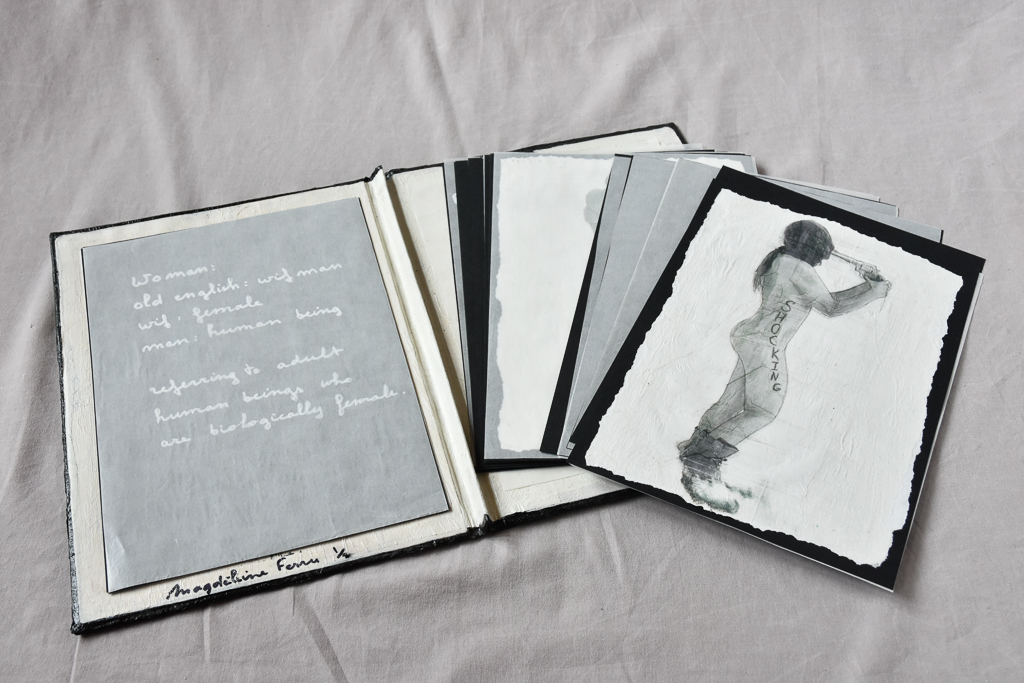 Woman:
old english: wifman
wif, female
man: human being
referring to adult
human beings who
are biologically female.
SHOCKING
Magdéleine Ferru 1/2